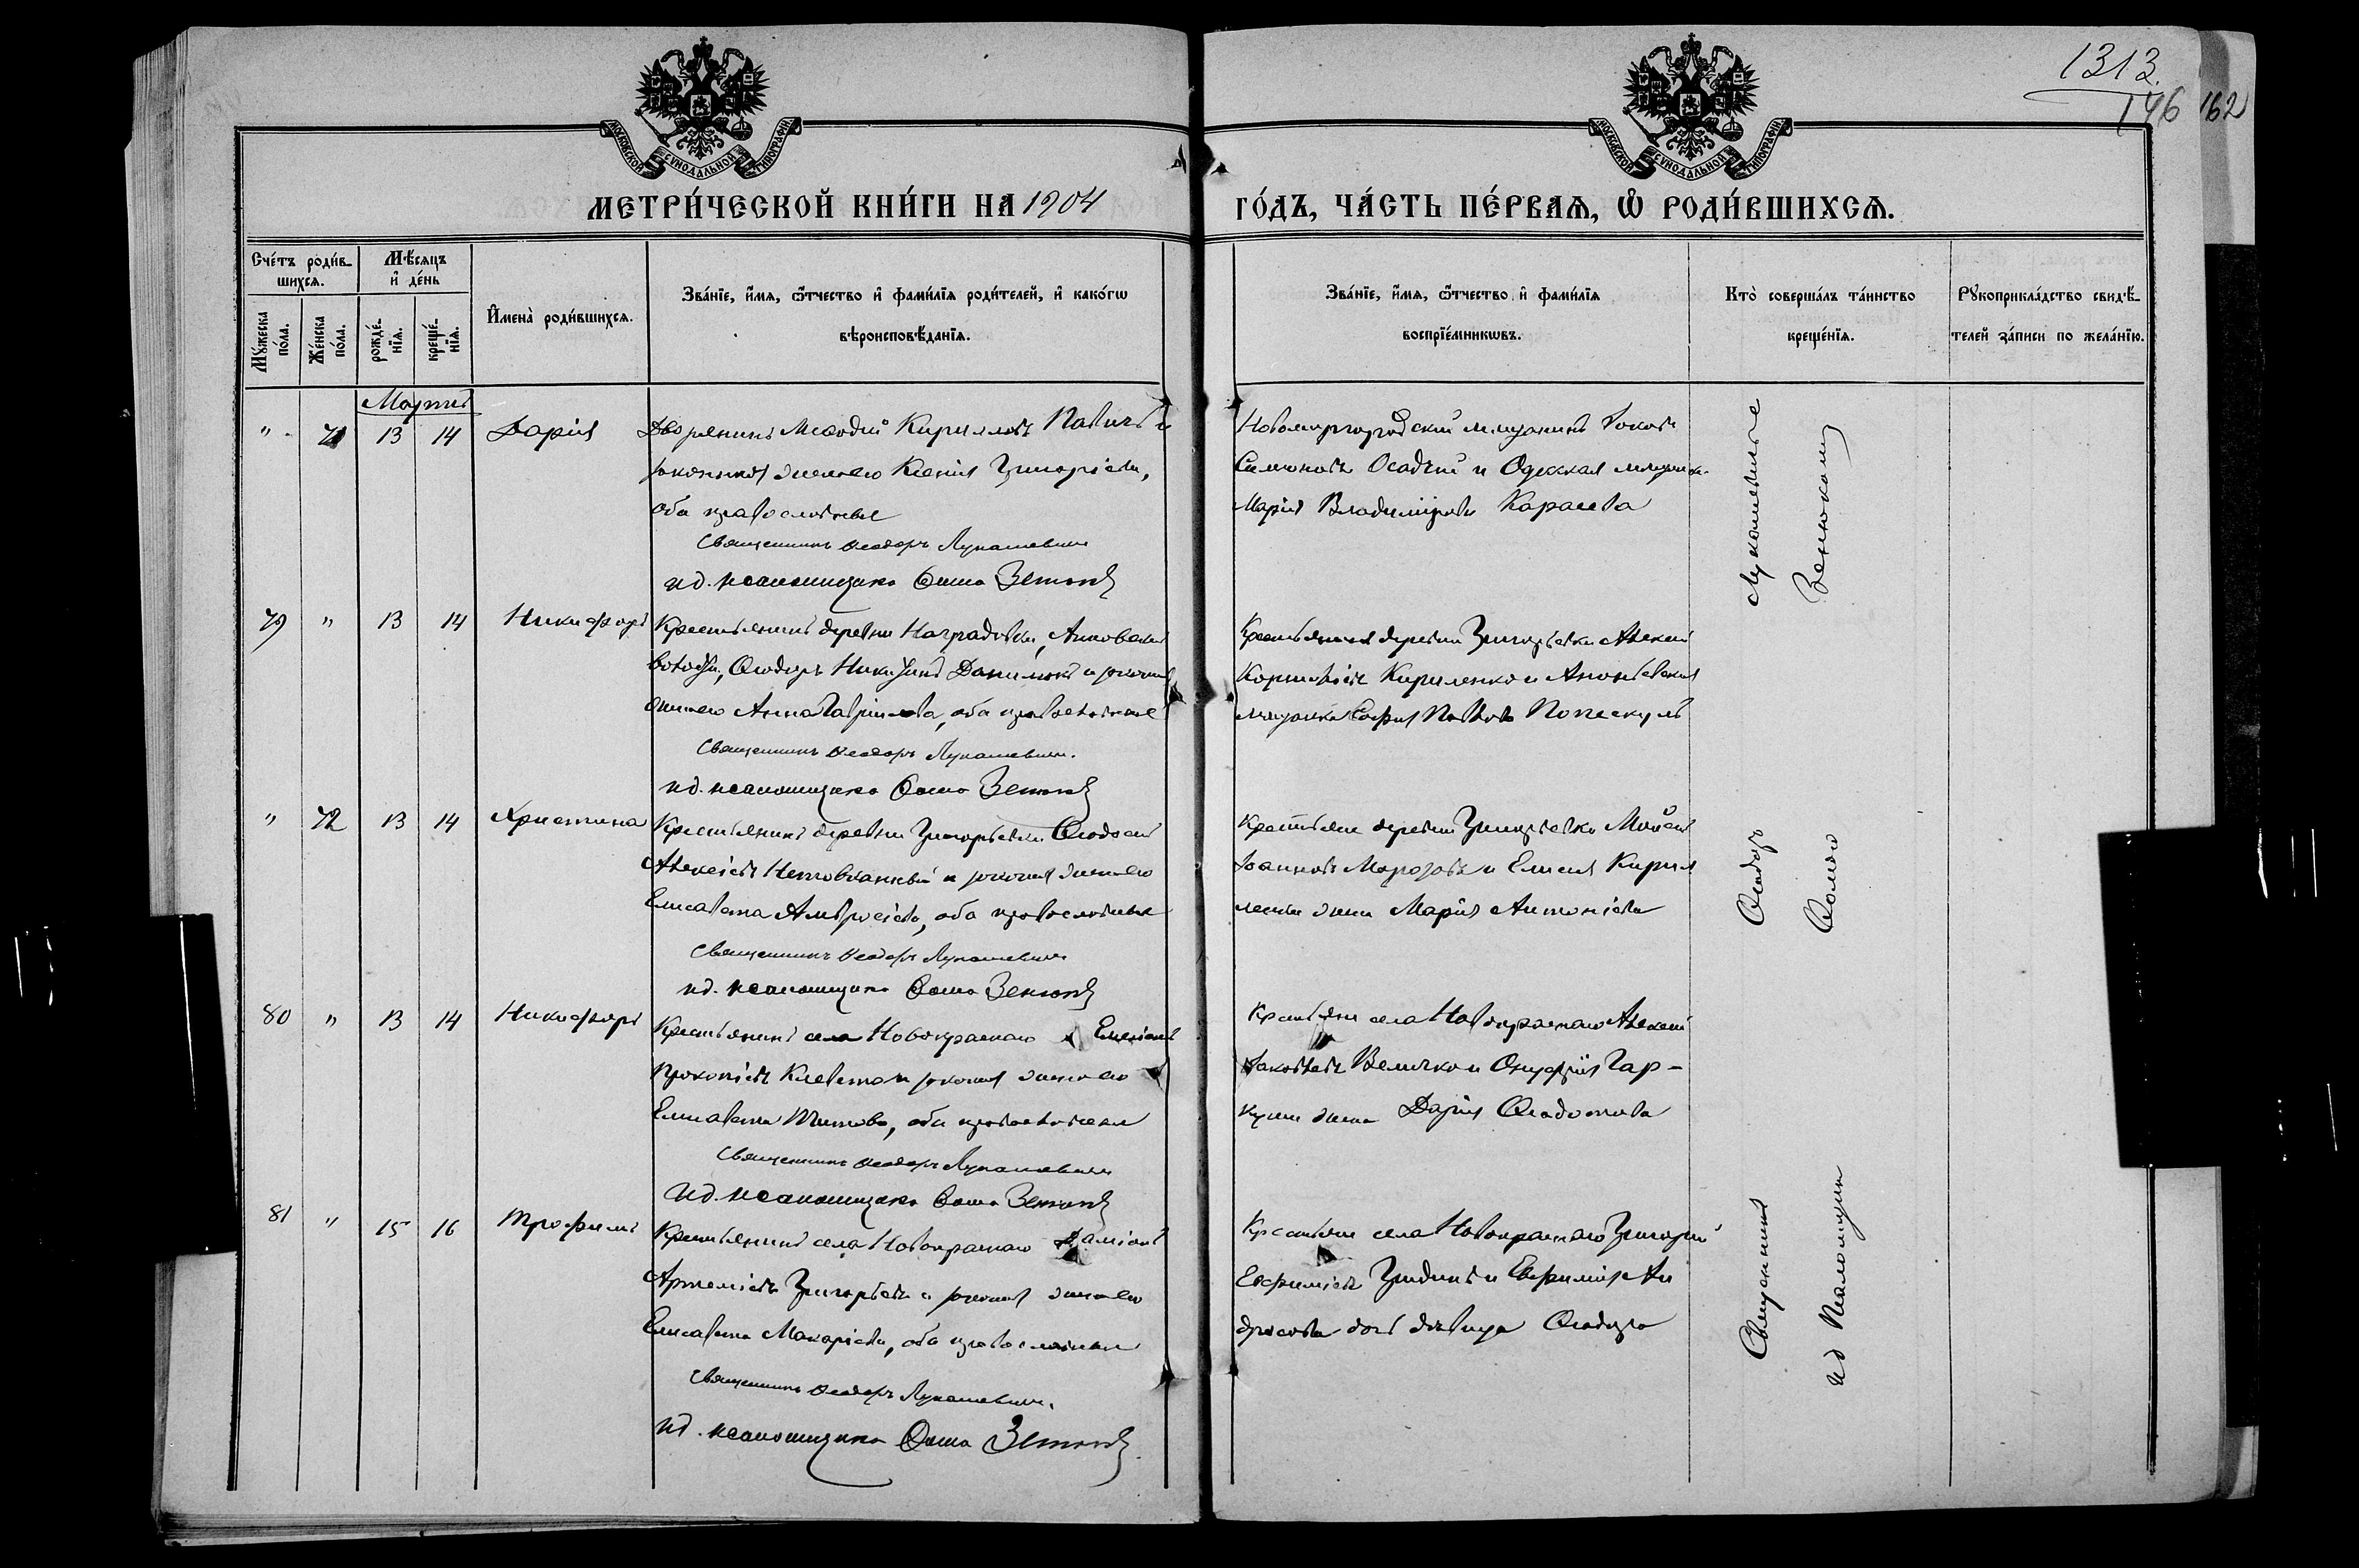 1313.
146 162
МОСКОВСКОЙ СѴНОДАЛЬНОЙ ТИПОГРАФІИ
МОСКОВСКОЙ СѴНОДАЛЬНОЙ ТИПОГРАФІИ
МЕТРИ́ЧЕСКОЙ КНИ́ГИ НА 1904
ГО́ДЪ, ЧА́СТЬ ПЕ́РВАѦ, Ѡ҆ РОДИ́ВШИХСѦ.
Сче́тъ роди́в-
шихсѧ.
Мѣ́сѧцъ
и҆ де́нь
Мꙋ́жеска
по́ла.
Же́нска
по́ла.
рожде́-
нїѧ.
креще́-
нїѧ.
И҆мена̀ роди́вшихсѧ.
Зва́нїе, и҆́мѧ, ѻ҆́тчество и҆ фами́лїѧ роди́телей, и҆ како́гѡ
вѣроисповѣ́данїѧ.
Зва́нїе, и҆́мѧ, ѻ҆́тчество и҆ фами́лїѧ
воспрїе́мникѡвъ.
Кто̀ соверша́лъ та́инство
креще́нїѧ.
Рꙋкоприкла́дство свидѣ́-
телей за́писи по жела́нїю.
Мартъ
" 71 13 14 Дарія
Дворянинъ Меѳодій Кирилловъ Павичъ и
законная жена его Ксенія Григоріева,
оба православные
Священникъ Ѳеодоръ Лукашевичъ
ид. псаломщика Ѳома Зенюкъ
Новомиргородскій мѣщанинъ Іоковъ
Симоновъ Осадчій и Одесская мѣщанка
Марія Владимірова Карасева
79 " 13 14 Никифоръ
Крестьянинъ деревни Наградовки, Анновской
волости, Ѳеодоръ Никитинъ Данилюкъ и законная
жена его Анна Гавріилова, оба православные
Священникъ Ѳеодоръ Лукашевичъ.
ид. псаломщика Ѳома Зенюкъ
Крестьянинъ деревни Григорьевки Алексій
Корниліевъ Кириленко и Ананьевская
мѣщанка Софія Павлова Попескулъ
" 72 13 14 Христина
Крестьянинъ деревни Григорьевки Ѳеодосій
Алексіевъ и законная жена его
Елисавета Амвросіева, оба православные
Священникъ Ѳеодоръ Лукашевичъ
ид. псаломщика Ѳома Зенюкъ
Крестьяне деревни Григорьевки Мойсей
Іоанновъ Морозовъ и Елисея Кирил
ленка жена Марія Антоніева
80 " 13 14 Никифоръ
Крестьянинъ села Новокраснаго Емеліанъ
Прокопіевъ и законная жена его
Елисавета Титова, оба православные
Священникъ Ѳеодоръ Лукашевичъ
ид. псаломщика Ѳома Зенюкъ
Крестьяне села Новокраснаго Алексій
Іаковлевъ Величко и Онуфрія Гар-
куши жена Дарія Ѳеодотова
81 " 15 16 Трофимъ
Крестьянинъ села Новокраснаго Даміанъ
Артеміевъ Григорьевъ и законная жена его
Елисавета Макаріева, оба православные
Священникъ Ѳеодоръ Лукашевичъ.
ид. псаломщика Ѳома Зенюкъ
Крестьяне села Новокраснаго Григорій
Евфиміевъ и Евфимія Ан
дреева дочь дѣвица Ѳеодора
Священникъ Ѳеодоръ
ид Псаломщика Ѳомою Зенюкомъ